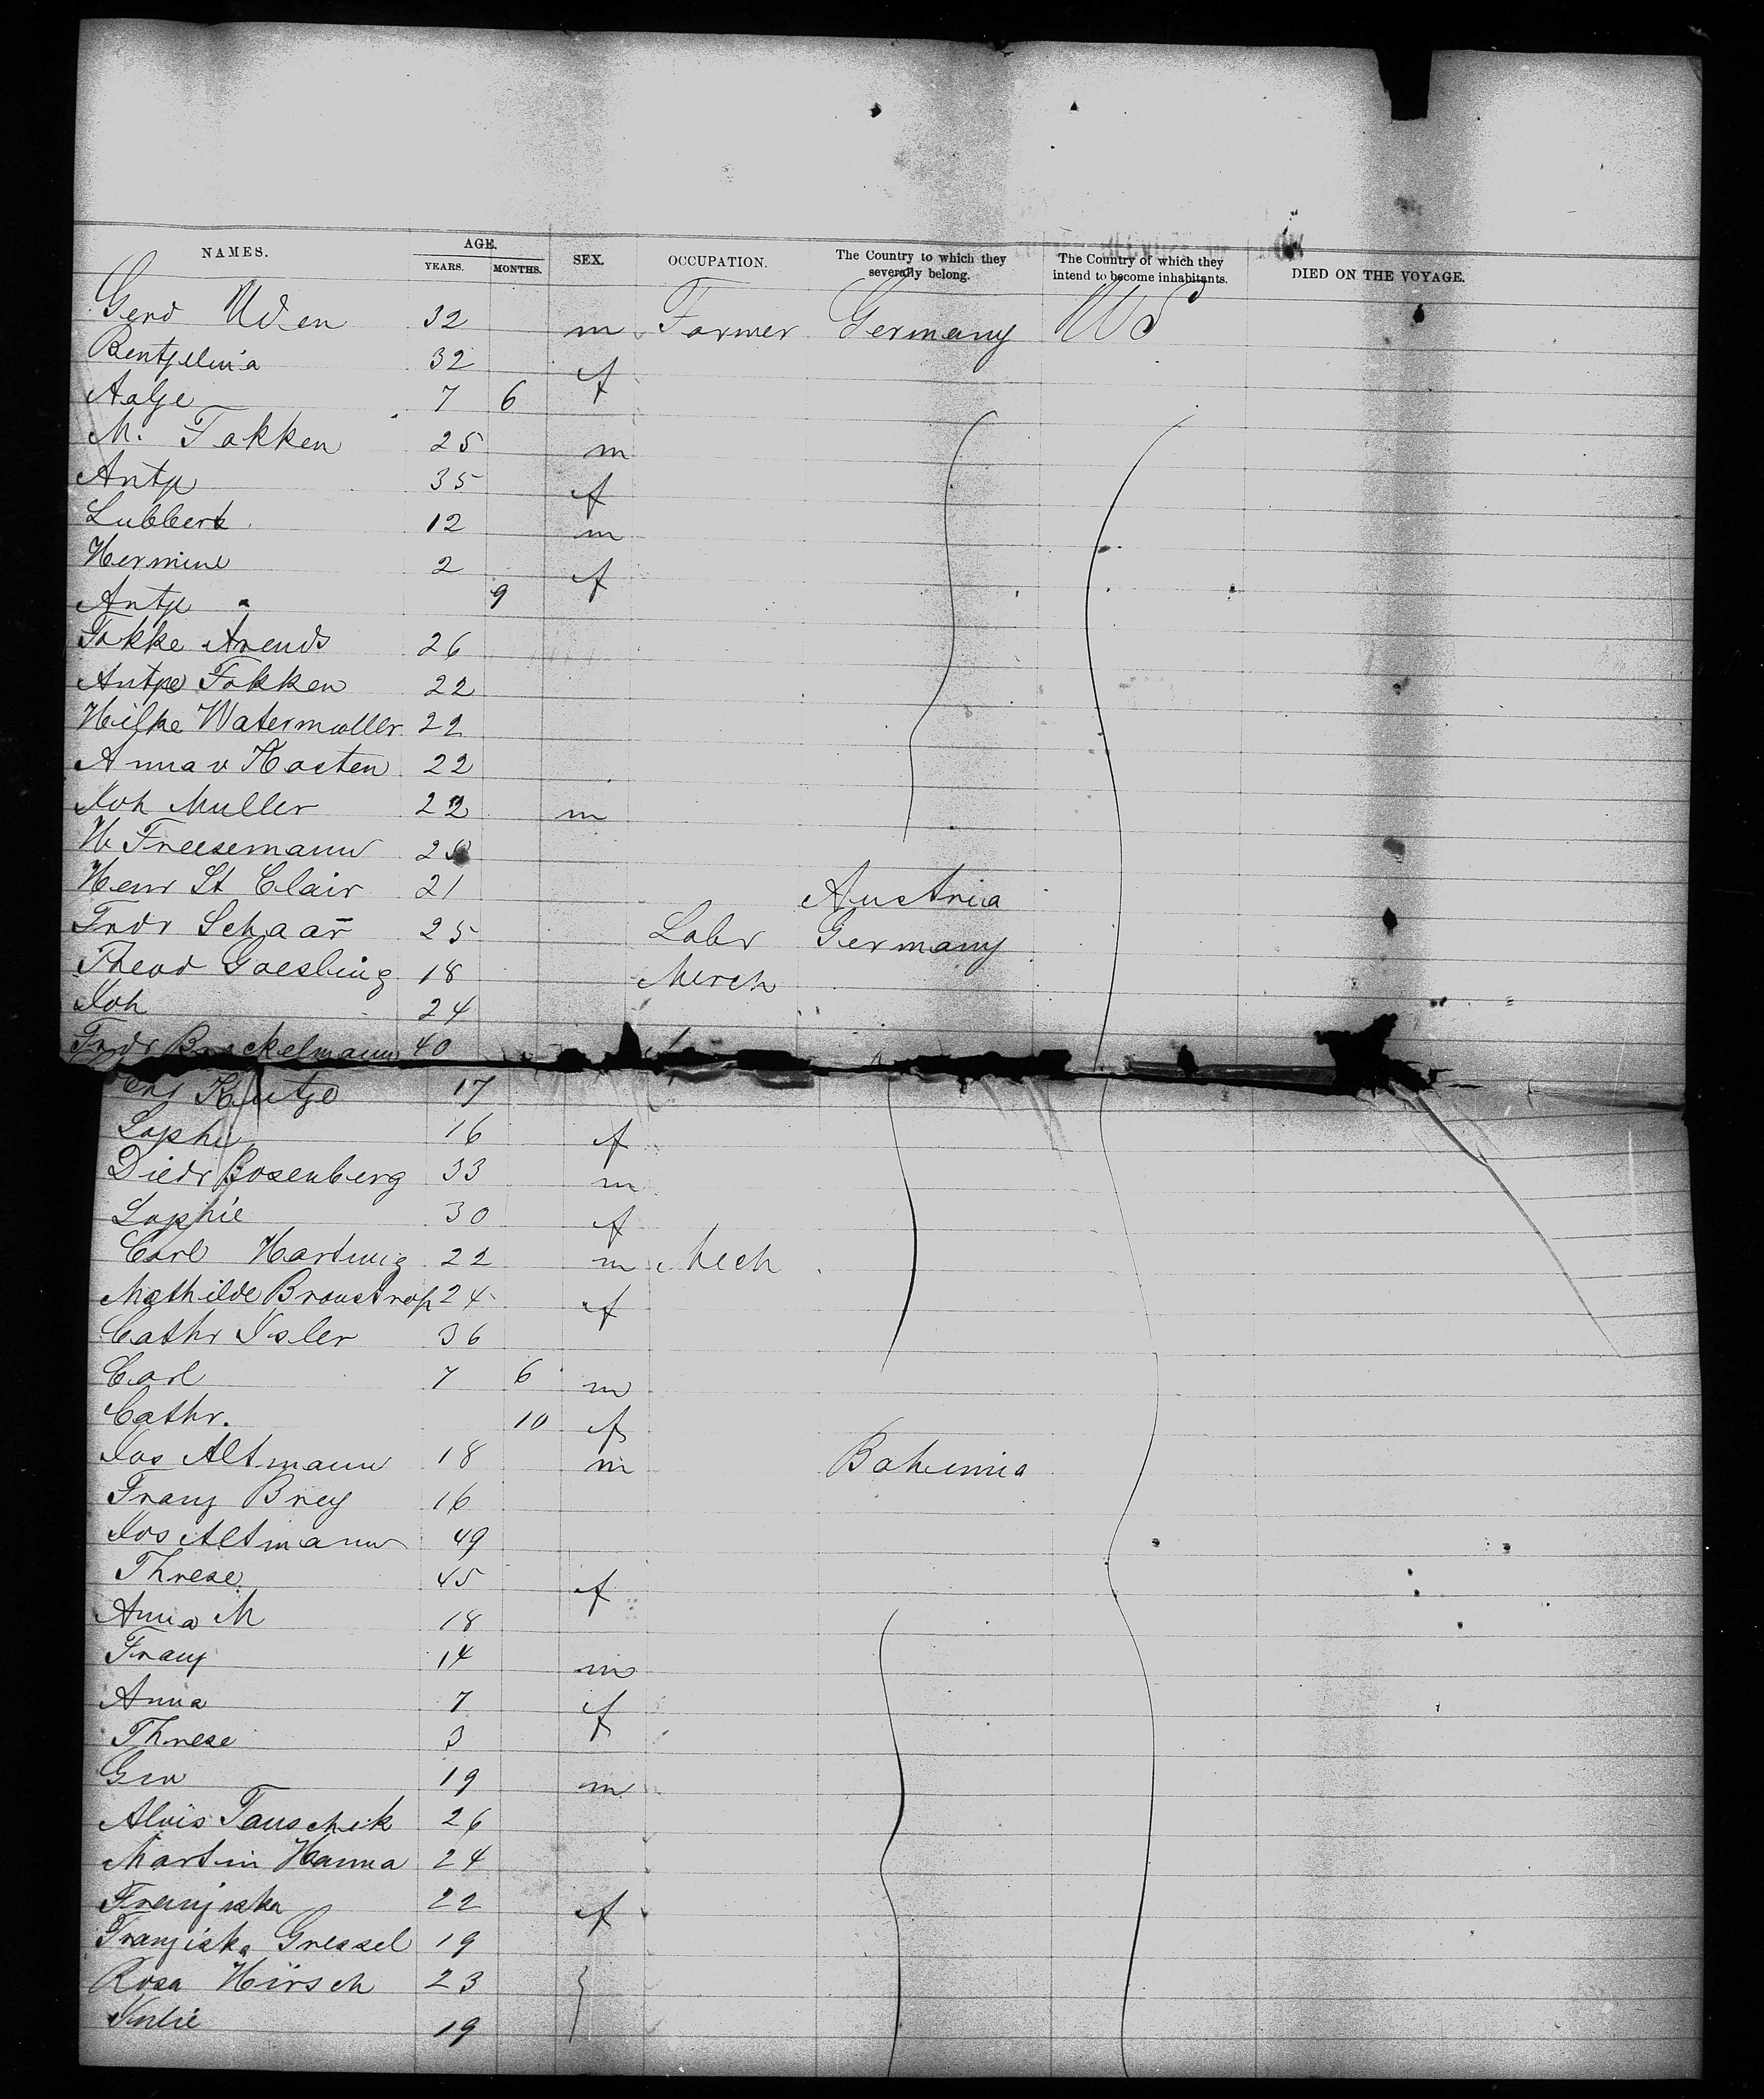 NAMES. AGE. SEX. OCCUPATION. The Country to which they severally belong. The Country of which they intend to become inhabitants. DIED ON THE VOYAGE.
YEARS. MONTHS.
Gerd Uden 32 m Farmer Germany US
Rentjelina 32 f
Aalje 7 6
M. Fokken 25 m
Antje 35 f
Lubbert 12 m
Hermine 2 f
Antje 9
Fokke Arends 26
Antje Fokken 22
Hilke Watermuller 22
Anna v Hasten 22
Joh Muller 22 m
H Freesemann
Henr St Clair 21 Austria
Frdr Schaar 25 Labr Germany
Theod Goesling 18 Merch
Joh 24
Frdr 40
17
Sophie 16 f
Diedr Rosenberg 33 m
Sophie 30 f
Carl Hartwig 22 m Mech
Mathilde Broustrop 24 f
Cathr Isler 36
Carl 7 6 m
Cathr. 10 f
Jos Altmann 18 m Bohemia
Franz Brey 16
Jos Altmann 49
Threse 45 f
Anna M 18
Franz 14 m
Anna 7 f
Threse 3
19 m
Alois Tauschek 26
Martin Hanna 24
Franziska 22 f
Franziska Gressel 19
Rosa Hirsch 23
Julie 19